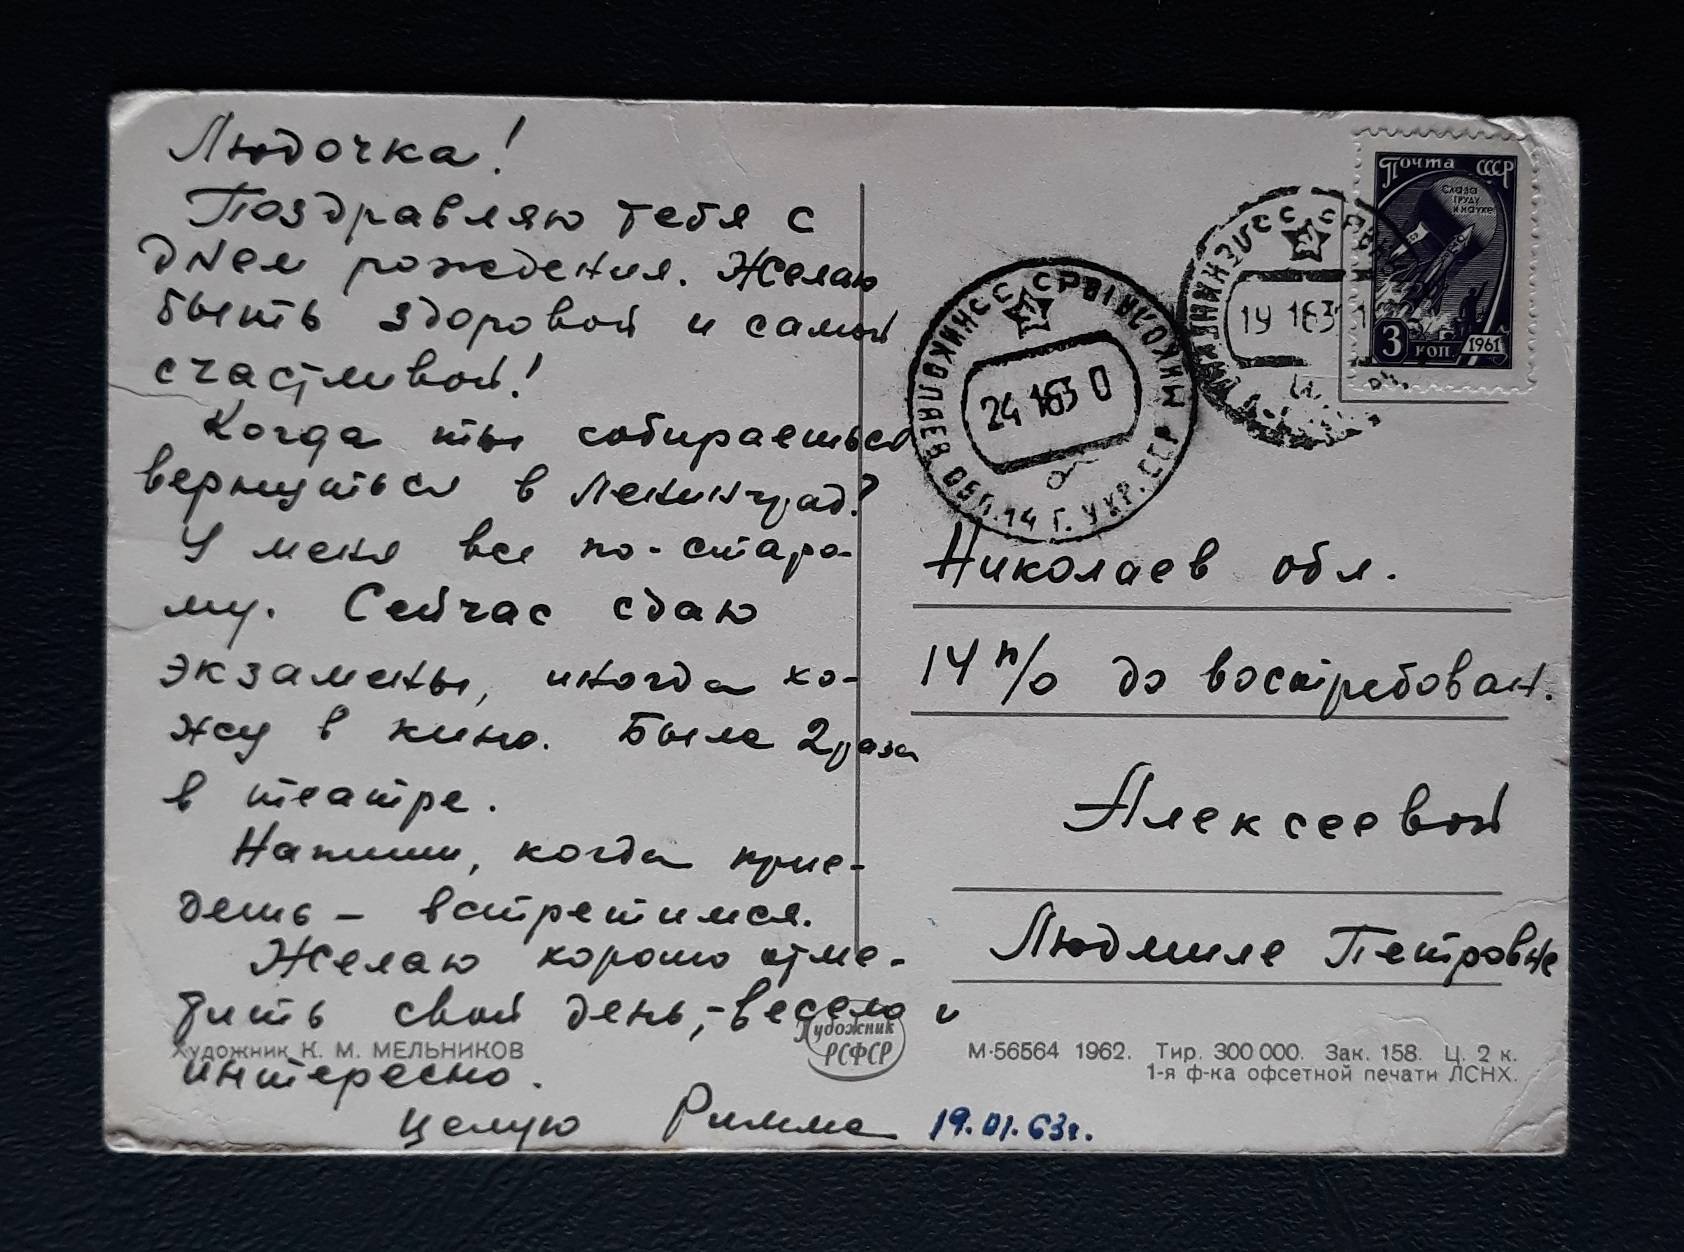 Людочка!
Поздравляю тебя с
днем рождения. Желаю
быть здоровой и самой
счастливой!
Когда ты собираешься
вернуться в Ленинград?
У меня все по-старо-
му. Сейчас сдаю
экзамены, иногда хо-
жу в кино. Была 2 раза
в театре.
Напиши, когда прие-
дешь – встретимся.
Желаю хорошо отме-
тить свой день, – весело и
интересно.
Целую Римма 19.01.63г.
Художник К. М. МЕЛЬНИКОВ
Художник
РСФСР
Почта СССР
Слава
труду
и науке
3 коп 1961
19 1 63
24 1 63 0
НИКОЛАЕВ ОБЛ. 14 Г. УКР. ССР
Николаев обл.
14 п/о до востребован.
Алексеевой
Людмиле Петровне
М-56564 1962. Тир. 300 000. Зак. 158. Ц. 2 к.
1-я ф-ка офсетной печати ЛСНХ.